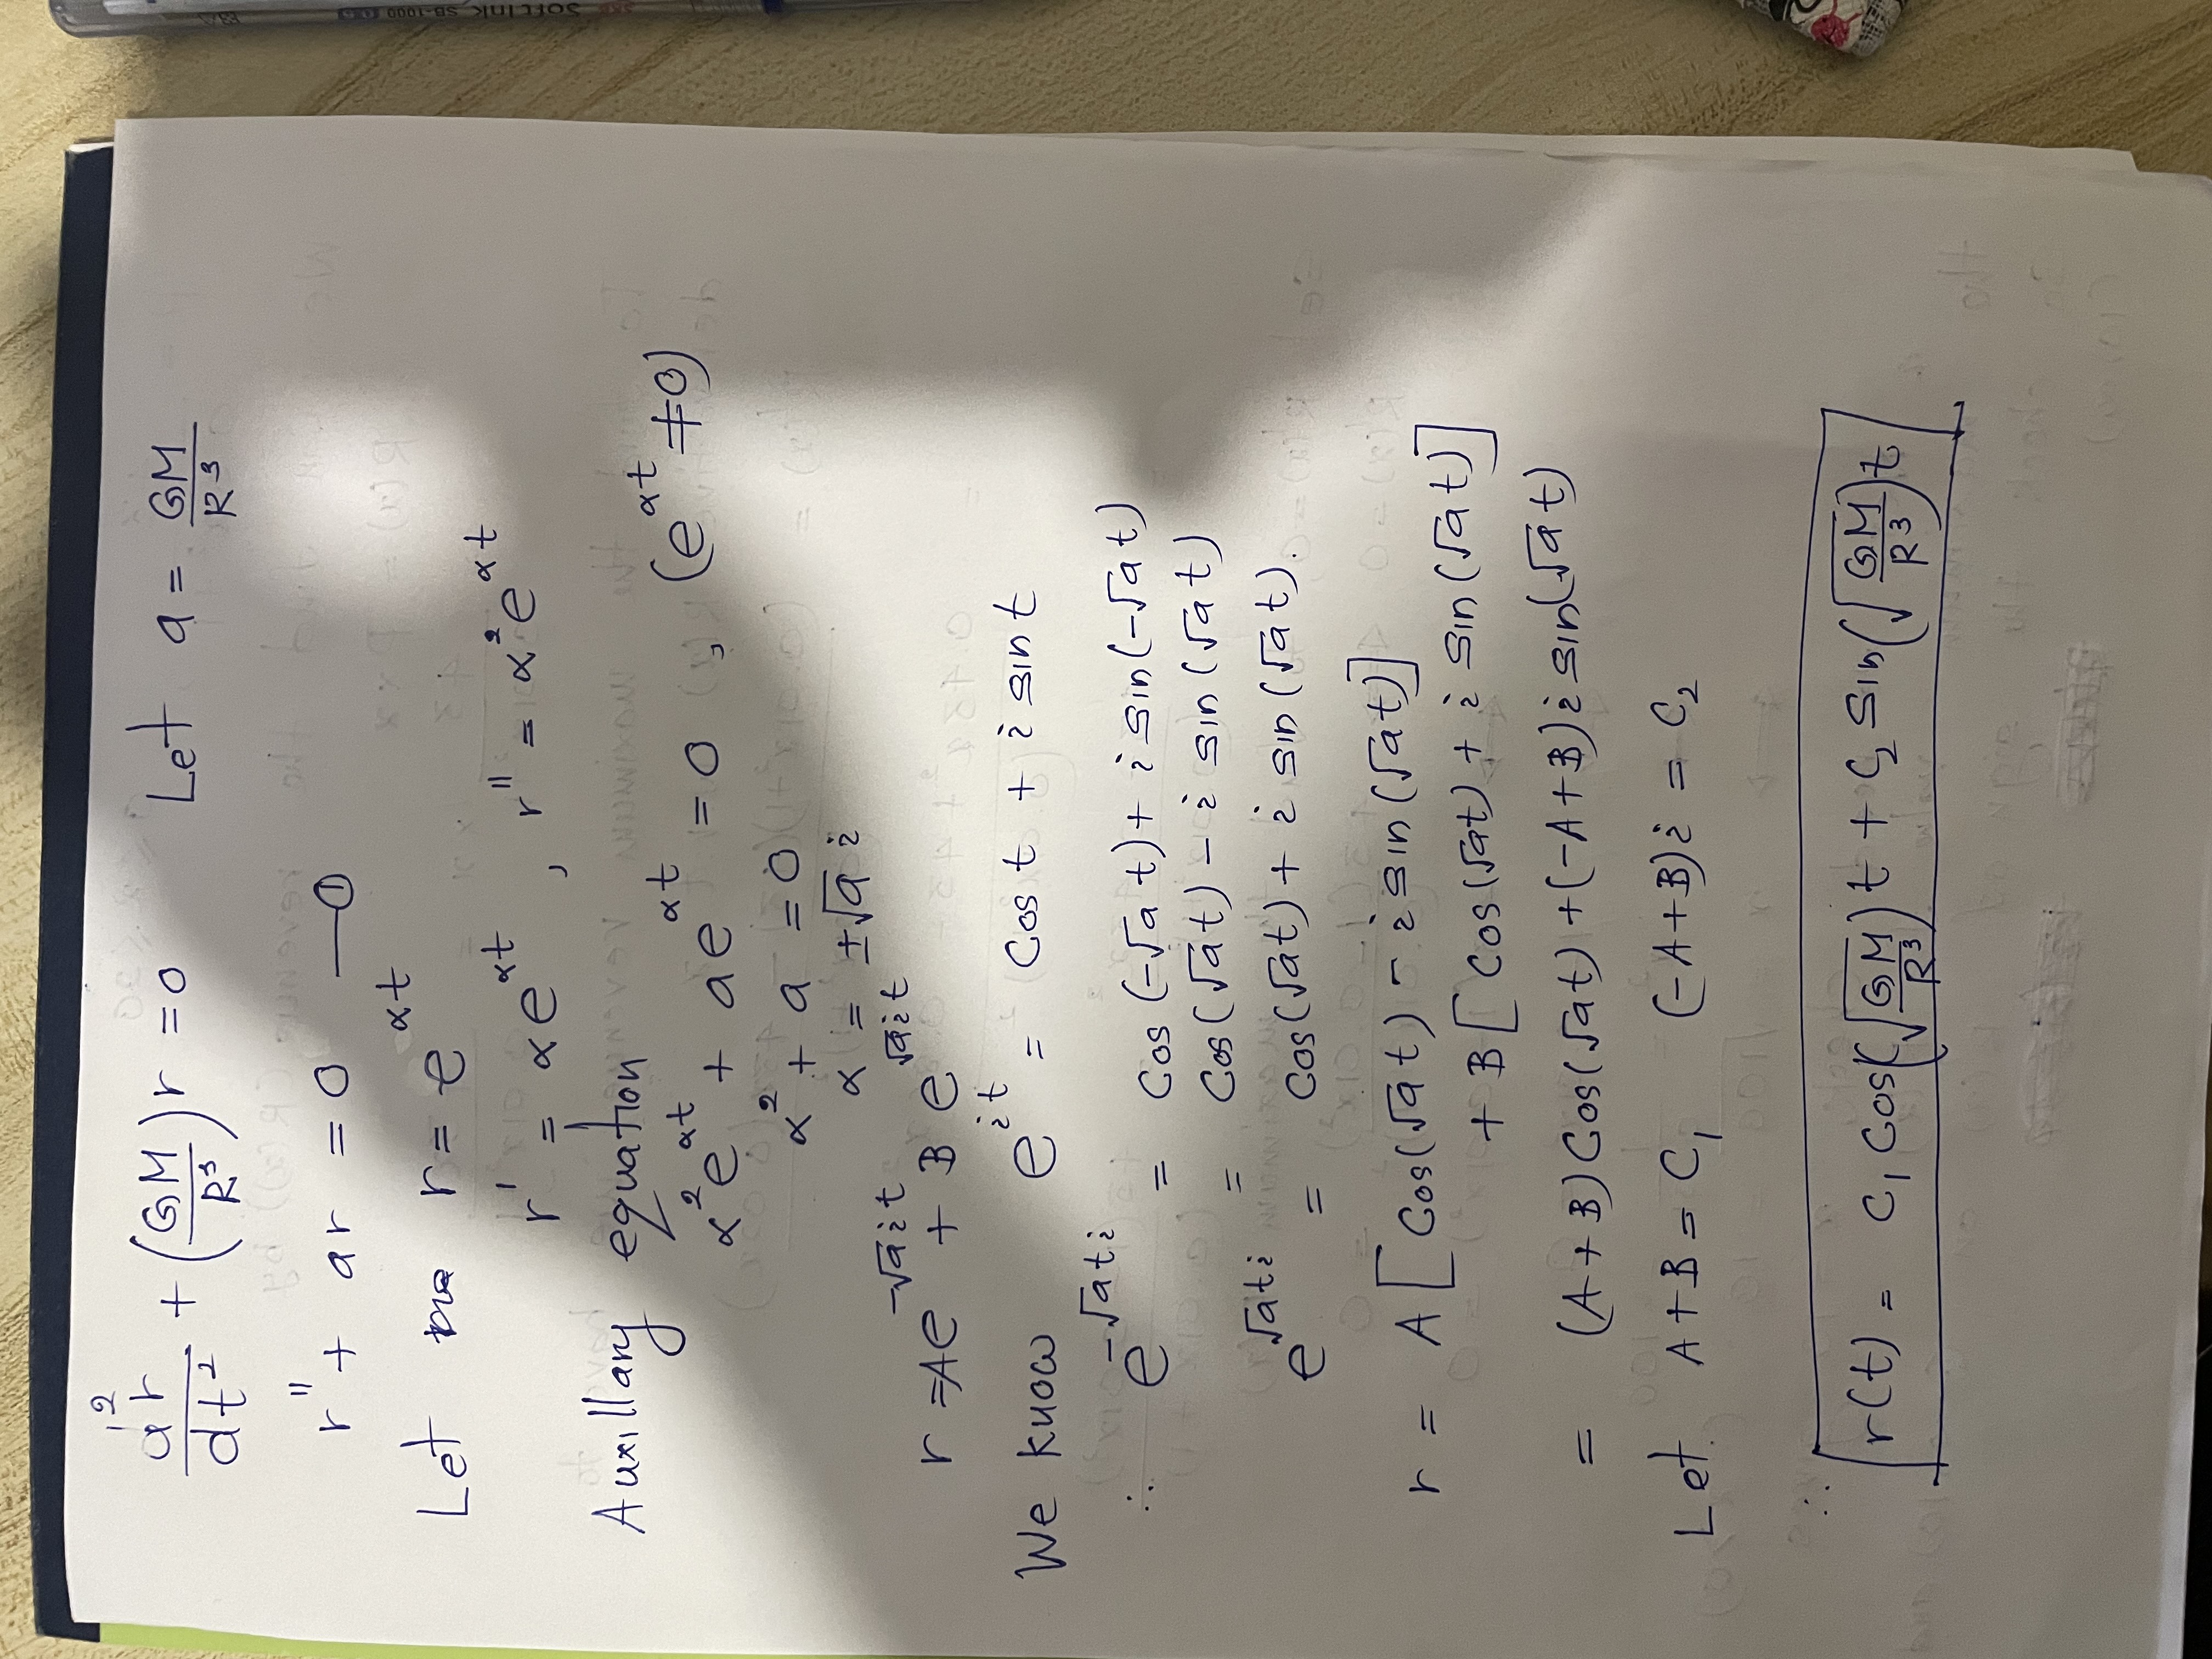 d²r/dt² + (GM/R³)r = 0    Let a = GM/R³
r'' + ar = 0 —①
Let r = e^αt
r' = αe^αt , r'' = α²e^αt
Auxillary equation
α²e^αt + ae^αt = 0 , (e^αt ≠ 0)
α² + a = 0
α = ±√a i
r = Ae^-√a i t + Be^√a i t
We know e^it = Cos t + i sin t
∴ e^-√a t i = Cos(-√a t) + i sin(-√a t)
= Cos(√a t) - i sin(√a t)
e^√a t i = Cos(√a t) + i sin(√a t).
r = A[Cos(√a t) - i sin(√a t)]
+ B[Cos(√a t) + i sin(√a t)]
= (A+B)Cos(√a t) + (-A+B)i sin(√a t)
Let A+B = C₁ (-A+B)i = C₂
∴ r(t) = C₁ Cos(√(GM/R³))t + C₂ sin(√(GM/R³))t
SoftInk SB-1000